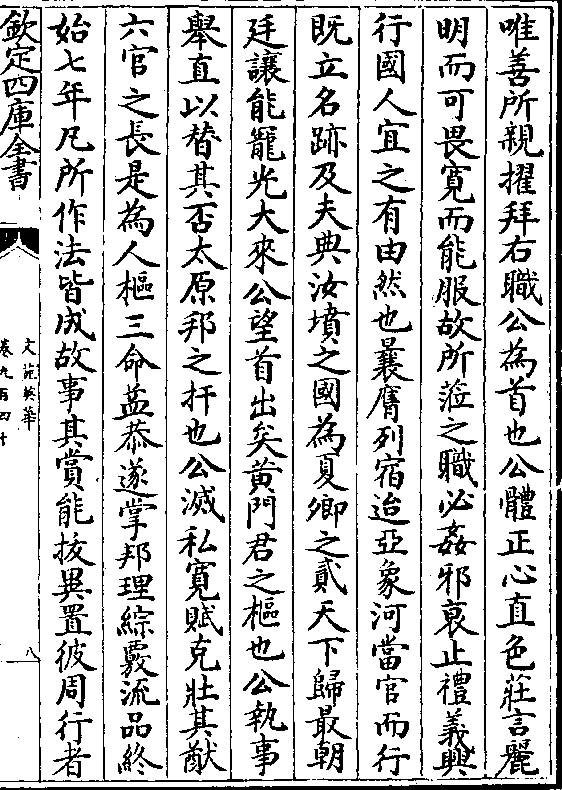 唯善所親擢拜右職公為首也公體正心直色莊言麗
明而可畏寛而能服故所蒞之職必姦邪衷止禮義興
行國人宜之有由然也曩膺列宿迨亞象河當官而行
既立名跡及夫典汝墳之國為夏卿之貳天下歸最朝
廷讓能寵光大來公望首出矣黄門君之樞也公執事
舉直以替其否太原邦之扞也公滅私寛賦克壯其猷
六官之長是為人樞三命益恭遂掌邦理綜覈流品終
始七年凡所作法皆成故事其賞能拔異置彼周行者
欽定四庫全書
文苑英華
卷九百四十
八